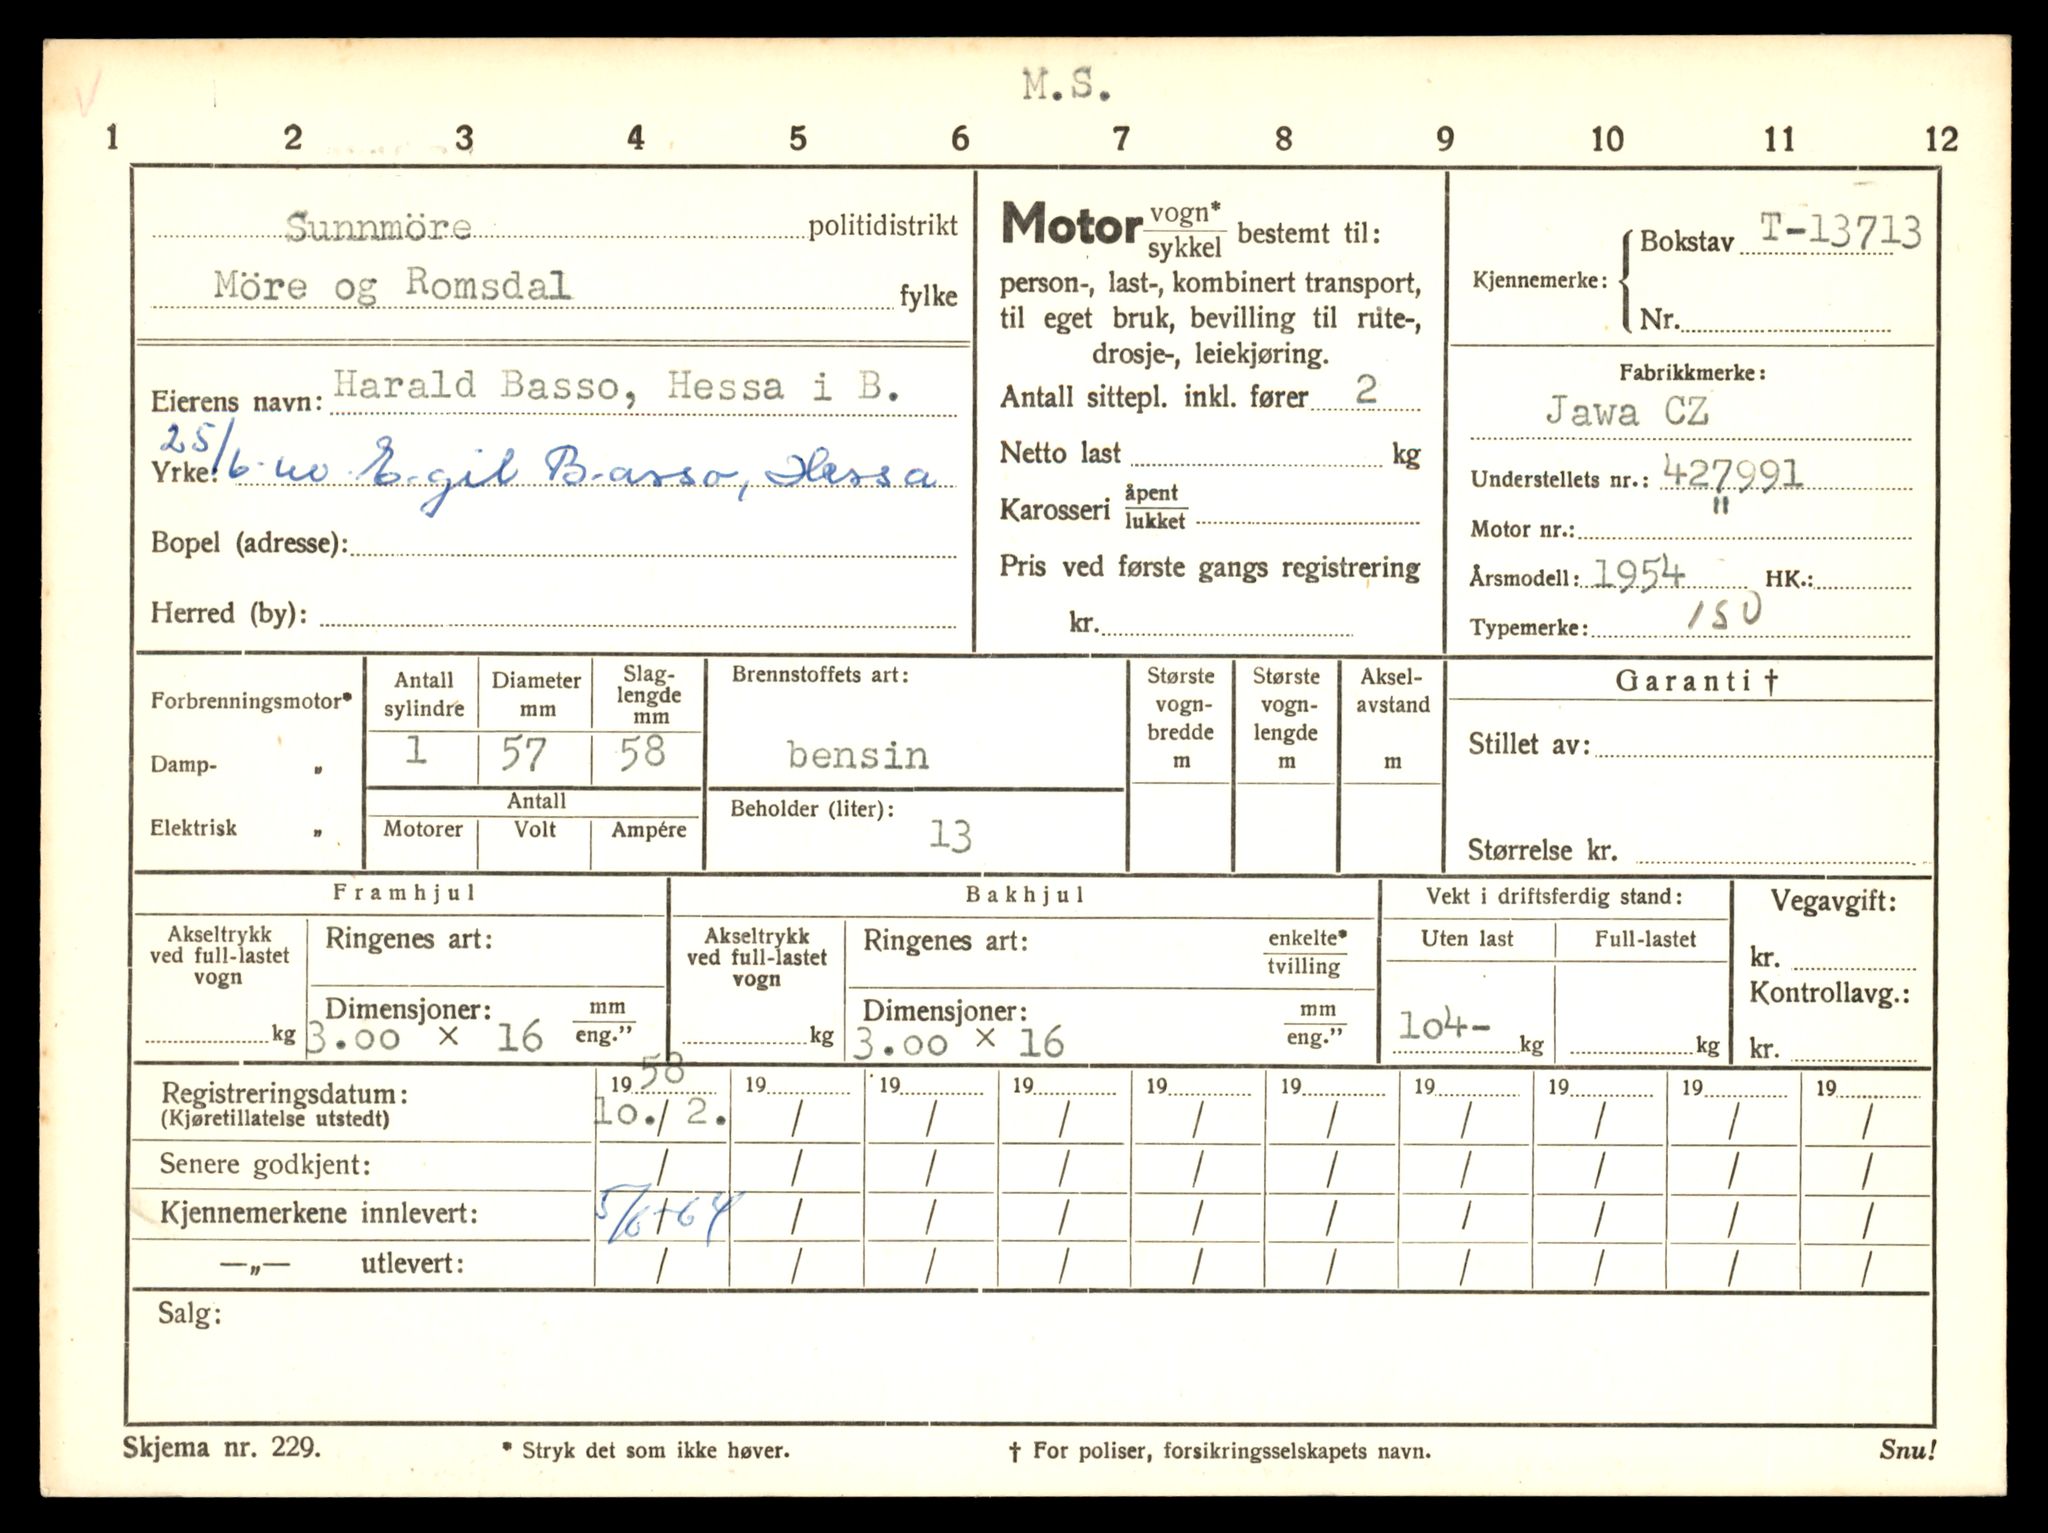 M.S.
1 2 3 4 5 6 7 8 9 10 11 12
Sunnmöre politidistrikt
Möre og Romsdal fylke
Eierens navn: Harald Basso, Hessa i B.
Yrke: 25/6-60 Egil Basso, Hessa
Bopel (adresse):
Herred (by):
Motor vogn* / sykkel bestemt til:
person-, last-, kombinert transport,
til eget bruk, bevilling til rute-,
drosje-, leiekjøring.
Antall sittepl. inkl. fører 2
Netto last kg
Karosseri åpent / lukket
Pris ved første gangs registrering
kr.
Kjennemerke: { Bokstav T-13713
Nr.
Fabrikkmerke:
Jawa CZ
Understellets nr.: 427991
Motor nr.: "
Årsmodell: 1954 HK.:
Typemerke: 150
Forbrenningsmotor*
Damp- „
Elektrisk „
Antall sylindre
1
Diameter mm
57
Slag-
lengde
mm
58
Antall
Motorer Volt Ampére
Brennstoffets art:
bensin
Beholder (liter):
13
Største
vogn-
bredde
m
Største
vogn-
lengde
m
Aksel-
avstand
m
Garanti †
Stillet av:
Størrelse kr.
Framhjul
Akseltrykk
ved full-lastet
vogn
kg
Ringenes art:
Dimensjoner: mm / eng.”
3.00 x 16
Bakhjul
Akseltrykk
ved full-lastet
vogn
kg
Ringenes art: enkelte* / tvilling
Dimensjoner: mm / eng.”
3.00 x 16
Vekt i driftsferdig stand:
Uten last Full-lastet
104- kg kg
Vegavgift:
kr.
Kontrollavg.:
kr.
Registreringsdatum: 1958 19 19 19 19 19 19 19 19 19
(Kjøretillatelse utstedt) 10./2. / / / / / / / / /
Senere godkjent: / / / / / / / / / /
Kjennemerkene innlevert: 5/6-64 / / / / / / / / /
—„— utlevert: / / / / / / / / / /
Salg:
Skjema nr. 229. * Stryk det som ikke høver. † For poliser, forsikringsselskapets navn. Snu!